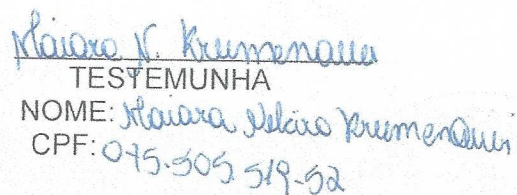 Maiara N. Krumenauer
TESTEMUNHA
NOME: Maiara Krumenauer
CPF: 075.505.519-52